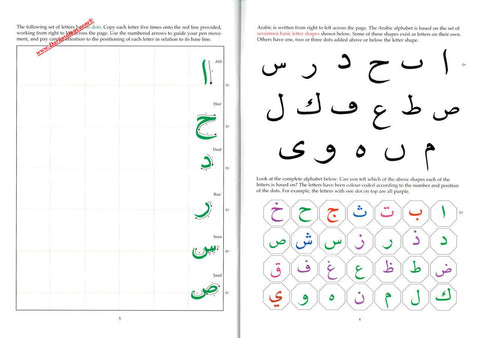 The following set of letters dots. Copy each letter five times onto the red line provided,
working from right to left across the page. Use the numbered arrows to guide your pen move-
ment, and pay attention to the positioning of each letter in relation to its base line.
Alif
ا
Haa'
ح
Daal
د
Raa'
ر
Seen
س
Saad
ص
5
Arabic is written from right to left across the page. The Arabic alphabet is based on the set of
seventeen basic letter shapes shown below. Some of these shapes exist as letters on their own.
Others have one, two or three dots added above or below the letter shape.
ا ٮ ح د ر س
ص ط ع ڡ ك ل
م ں ه و ى
Look at the complete alphabet below. Can you tell which of the above shapes each of the
letters is based on? The letters have been colour-coded according to the number and position
of the dots. For example, the letters with one dot on top are all purple.
ا ب ت ث ج ح خ
د ذ ر ز س ش ص
ض ط ظ ع غ ف ق
ك ل م ن ه و ي
4